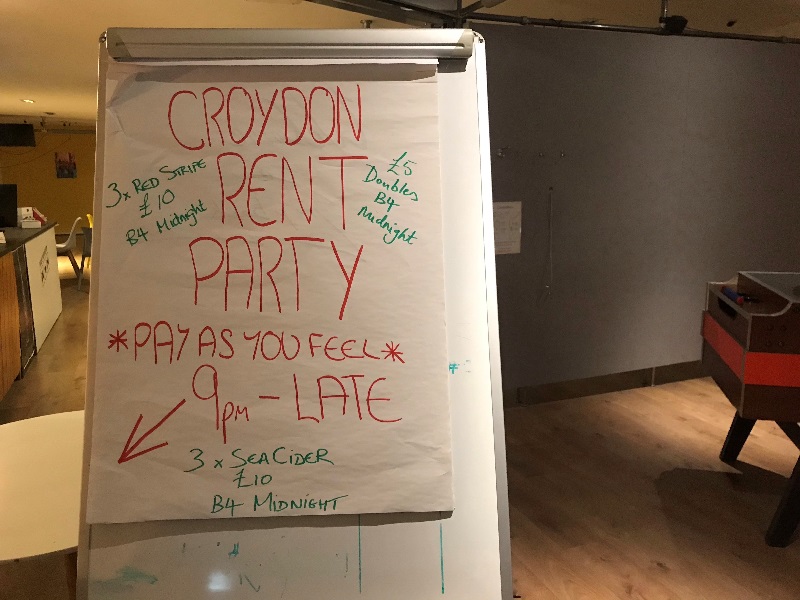 CROYDON
RENT
PARTY
3 x RED STRIPE
£10
B4 Midnight
£5
Doubles
B4
Midnight
*PAY AS YOU FEEL*
9pm - LATE
3 x SEA CIDER
£10
B4 MIDNIGHT